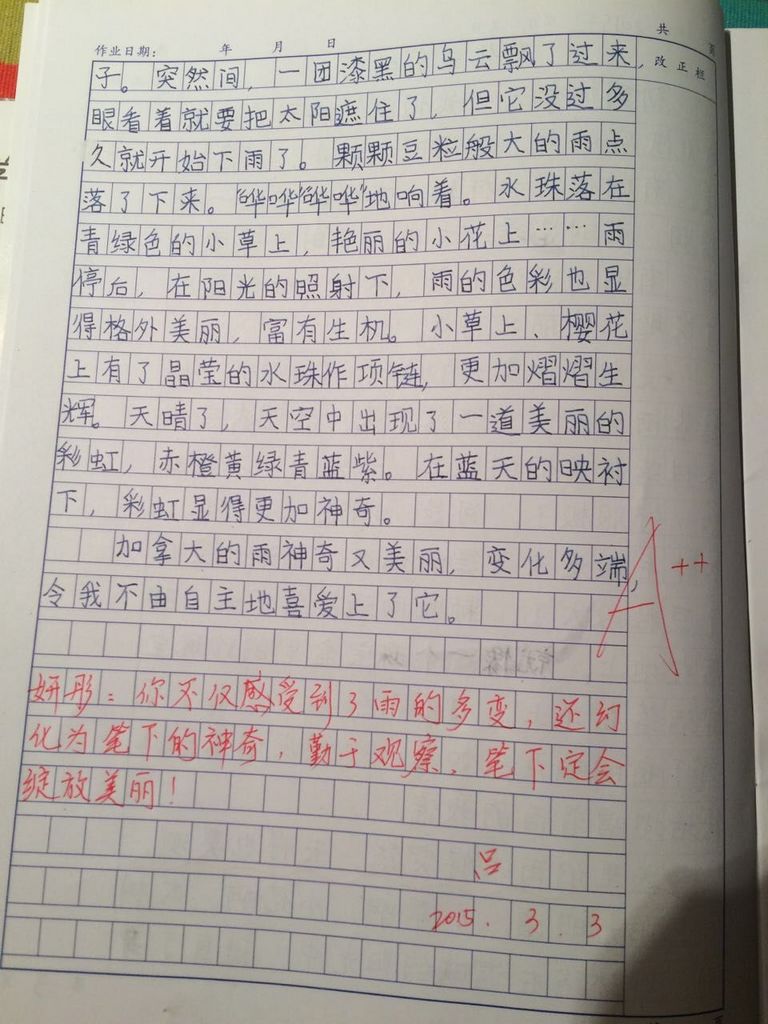 共 页
作业日期： 年 月 日
改正栏
子。突然间，一团漆黑的乌云飘了过来，
眼看着就要把太阳遮住了，但它没过多
久就开始下雨了。颗颗豆粒般大的雨点
落了下来。“哗哗”“哗哗”地响着。水珠落在
青绿色的小草上，艳丽的小花上……雨
停后，在阳光的照射下，雨的色彩也显
得格外美丽，富有生机。小草上、樱花
上有了晶莹的水珠作项链，更加熠熠生
辉。天晴了，天空中出现了一道美丽的
彩虹，赤橙黄绿青蓝紫。在蓝天的映衬
下，彩虹显得更加神奇。
加拿大的雨神奇又美丽，变化多端，
令我不由自主地喜爱上了它。
A++
妍彤：你不仅感受到了雨的多变，还幻
化为笔下的神奇，勤于观察，笔下定会
绽放美丽！
吕
2015.3.3